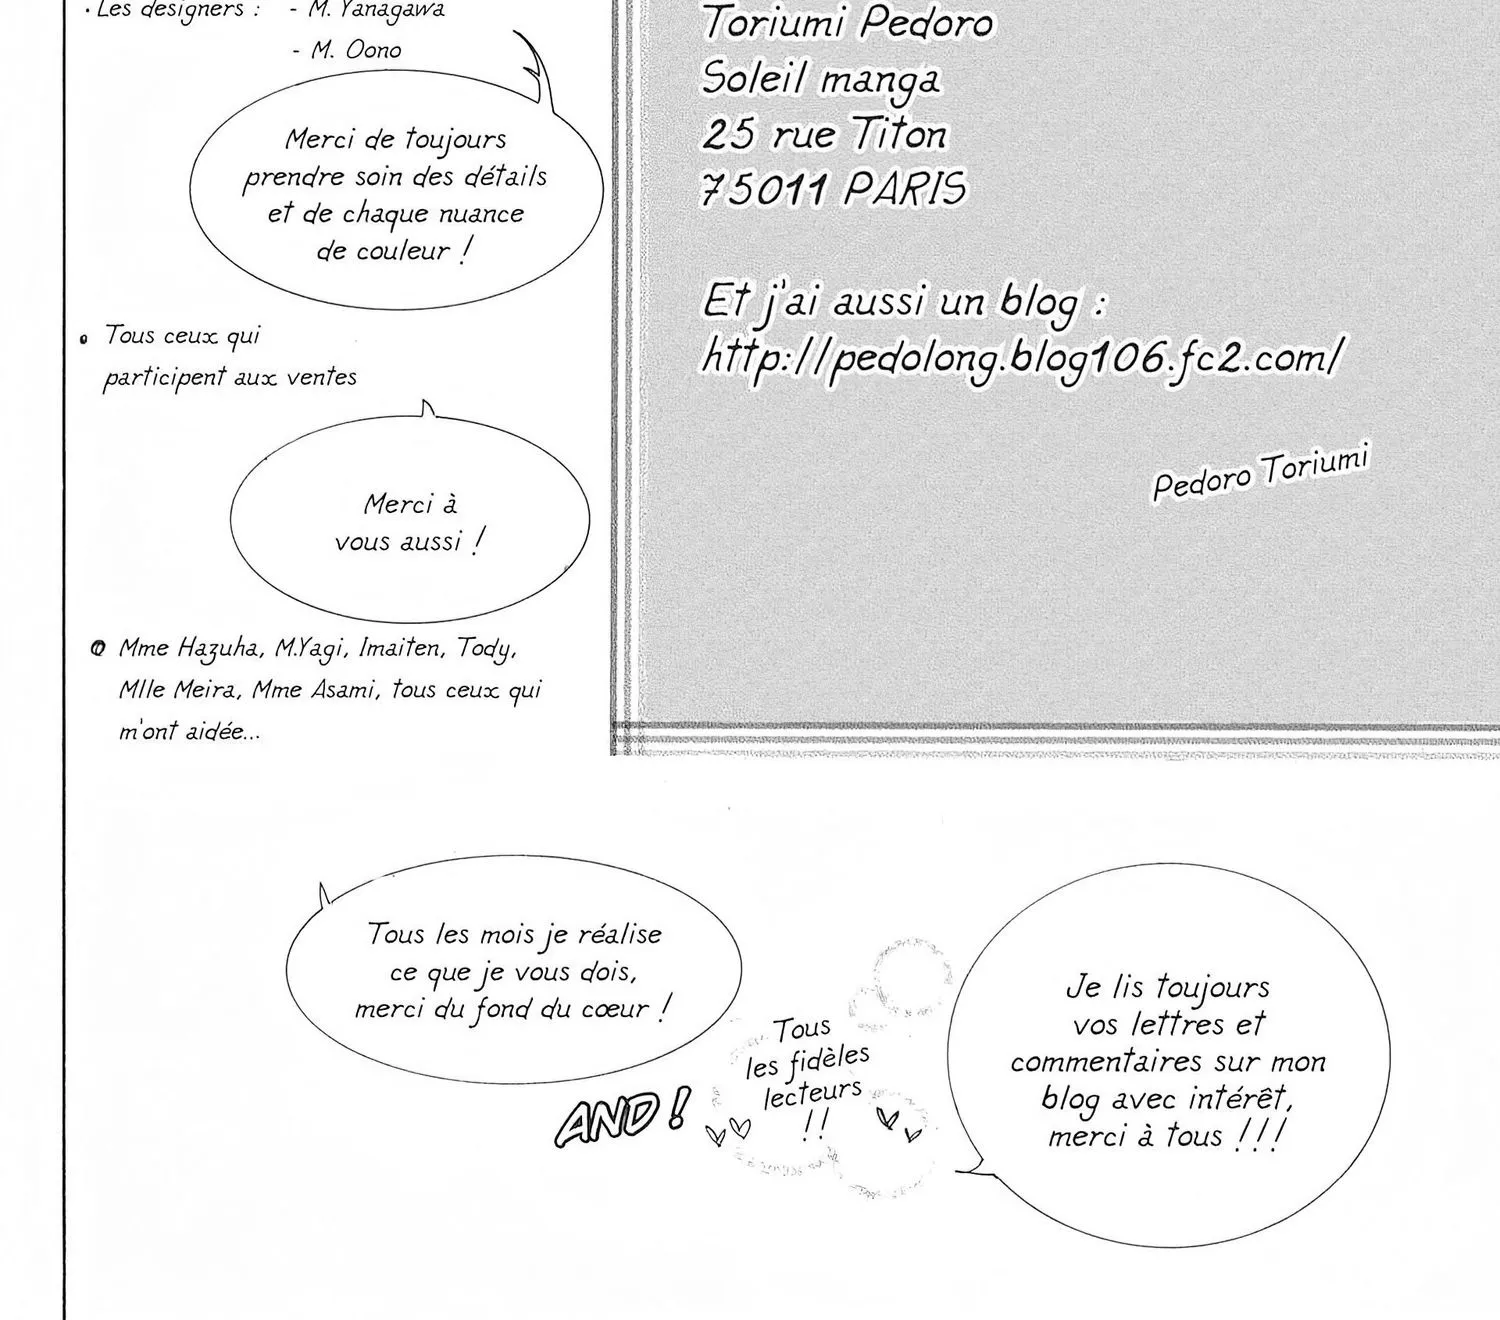 · Les designers : - M. Yanagawa
- M. Oono
Merci de toujours
prendre soin des détails
et de chaque nuance
de couleur !
Tous ceux qui
participent aux ventes
Merci à
vous aussi !
Mme Hazuha, M.Yagi, Imaiten, Tody,
Mlle Meira, Mme Asami, tous ceux qui
m'ont aidée...
Toriumi Pedoro
Soleil manga
25 rue Titon
75011 PARIS
Et j'ai aussi un blog :
http://pedolong.blog106.fc2.com/
Pedoro Toriumi
Tous les mois je réalise
ce que je vous dois,
merci du fond du cœur !
AND !
Tous
les fidèles
lecteurs
!!
Je lis toujours
vos lettres et
commentaires sur mon
blog avec intérêt,
merci à tous !!!